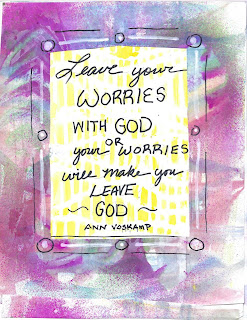 Leave your
WORRIES
WITH GOD
OR
your WORRIES
will make you
LEAVE
~ GOD ~
ANN VOSKAMP